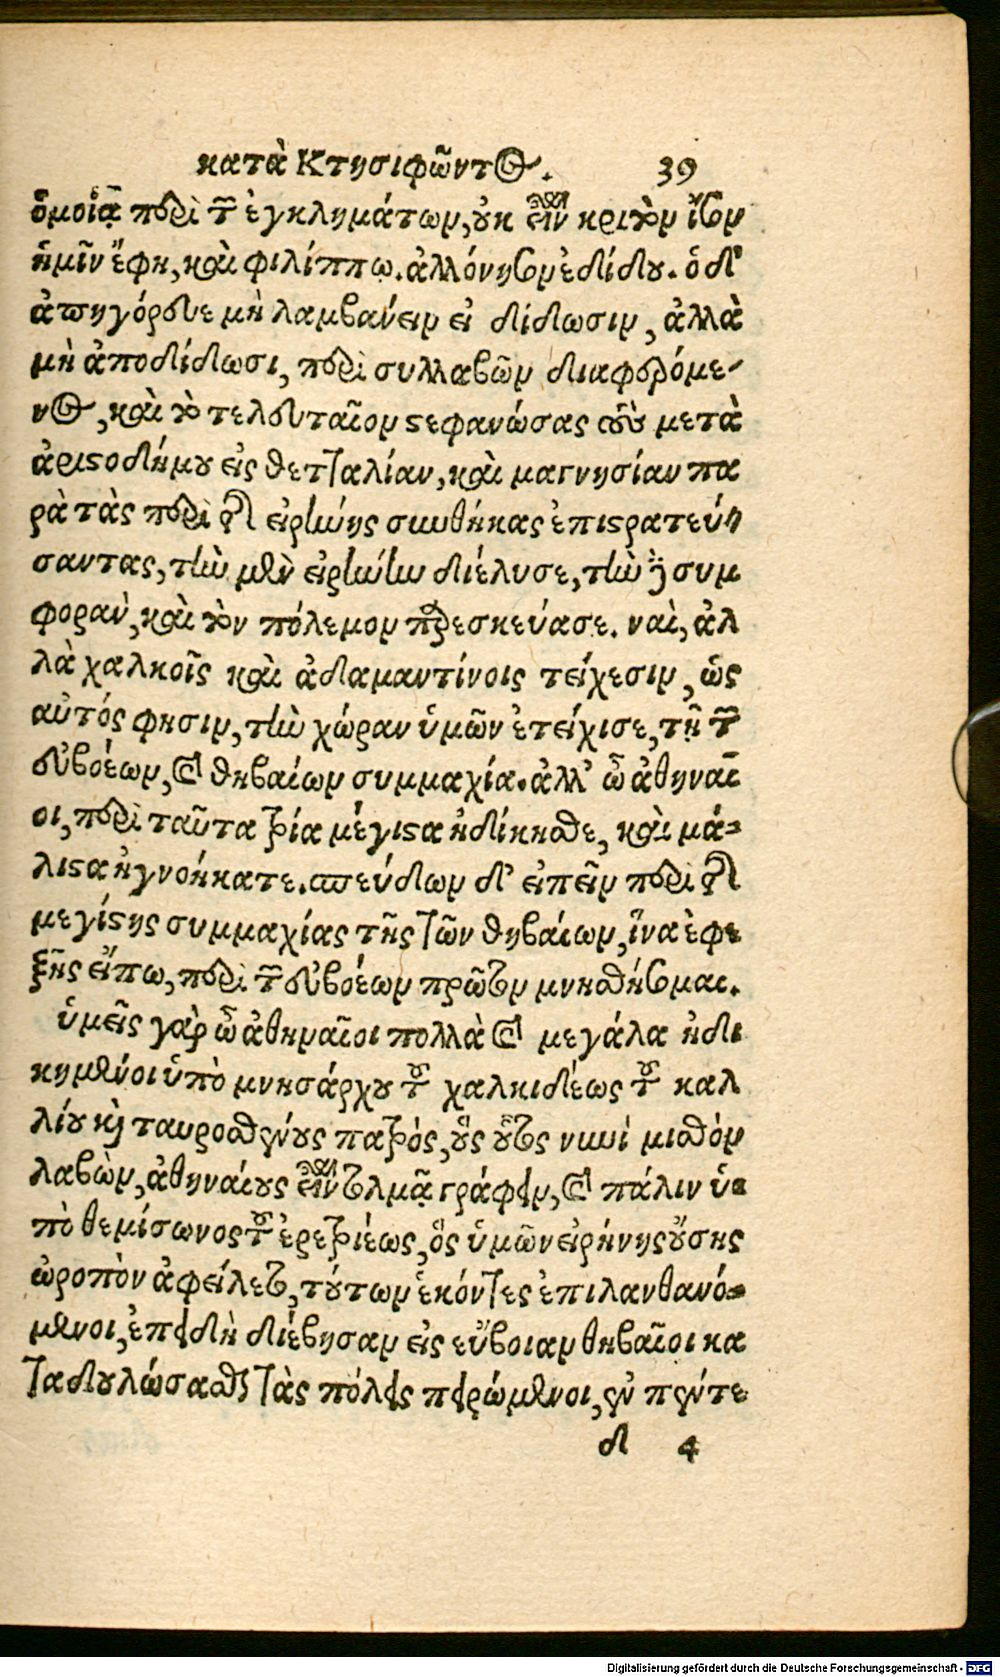 κατὰ Κτησιφῶντος. 39
ὅμοιᾳ περὶ τῶν ἐγκλημάτων, οὐκ εἶναι κριτὴν ἴσον
ἡμῖν ἔφη, καὶ φιλίππω. ἁλλόνησον ἐδίδου. ὁ δ'
ἀπηγόρευε μὴ λαμβάνειν εἰ δίδωσιν, ἀλλὰ
μὴ ἀποδίδωσι, περὶ συλλαβῶν διαφερόμε-
νος, καὶ τὸ τελευταῖον στεφανώσας τοὺς μετὰ
ἀριστοδήμου εἰς θετταλίαν, καὶ μαγνησίαν πα
ρὰ τὰς περὶ τῆς εἰρήνης συνθήκας ἐπιστρατεύ-
σαντας, τὴν μὲν εἰρήνην διέλυσε, τὴν δὲ συμ
φορὰν, καὶ τὸν πόλεμον παρεσκεύασε. ναὶ, ἀλ
λὰ χαλκοῖς καὶ ἀδαμαντίνοις τείχεσιν, ὡς
αὐτός φησιν, τὴν χώραν ὑμῶν ἐτείχισε, τῇ τῶν
εὐβοέων, καὶ θηβαίων συμμαχία. ἀλλ' ὦ ἀθηναῖ
οι, περὶ ταῦτα τρία μέγιστα ἠδίκησθε, καὶ μά-
λιστα ἠγνοήκατε. σπεύδων δ' εἰπεῖν περὶ τῆς
μεγίστης συμμαχίας τῆς τῶν θηβαίων, ἵνα ἐφε
ξῆς εἴπω, περὶ τῶν εὐβοέων πρῶτον μνησθήσομαι.
ὑμεῖς γὰρ ὦ ἀθηναῖοι πολλὰ καὶ μεγάλα ἠδι
κημένοι ὑπὸ μνησάρχου τοῦ χαλκιδέως τοῦ καλ
λίου καὶ ταυροσθένους πατρός, οὓς οὗτος νυνὶ μισθὸν
λαβὼν, ἀθηναίους εἶναι τολμᾷ γράφειν, καὶ πάλιν ὑ-
πὸ θεμίσωνος τοῦ ἐρετριέως, ὃς ὑμῶν εἰρήνης οὔσης
ὠροπὸν ἀφείλετο, τούτων ἑκόντες ἐπιλανθανό-
μενοι, ἐπειδὴ διέβησαν εἰς εὔβοιαν θηβαῖοι κα
ταδουλώσασθαι τὰς πόλεις πειρώμενοι, ἐν πέντε
d 4
Digitalisierung gefördert durch die Deutsche Forschungsgemeinschaft - DFG